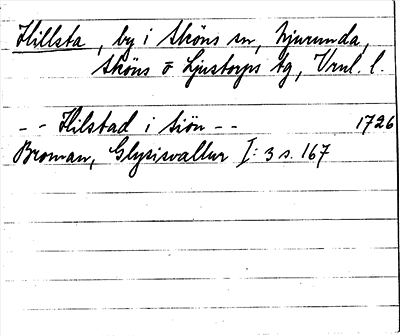 Hillsta, by i Sköns sn, Njurunda,
Sköns o Ljustorps tg, Vrnl. l.
-- Hilstad i Siön -- 1726
Broman, Glysisvallur I: 3 s. 167